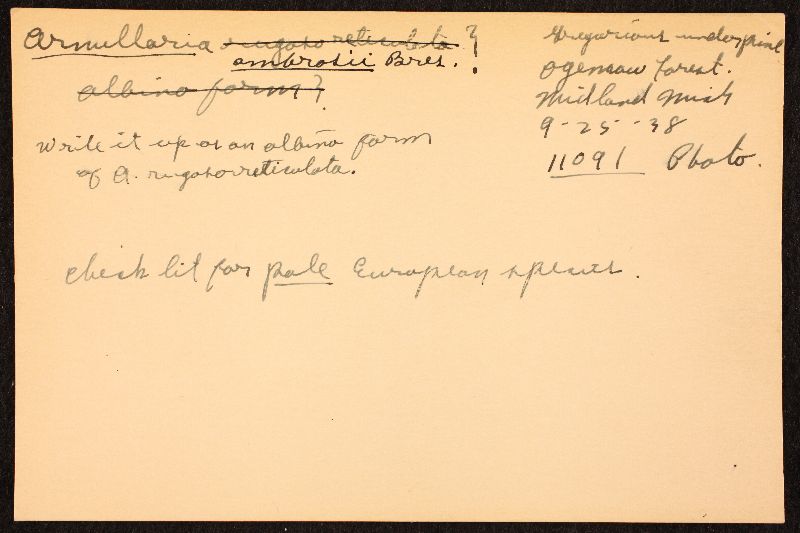 Armillaria rugoso reticulata ?
ambrosii Bres. !
albino form ?
Write it up as an albino form
of A. rugosoreticulata.
check lit for pale European species.
Gregarious under pine
Ogemaw Forest.
Midland Mich
9-25-38
11091 Photo.